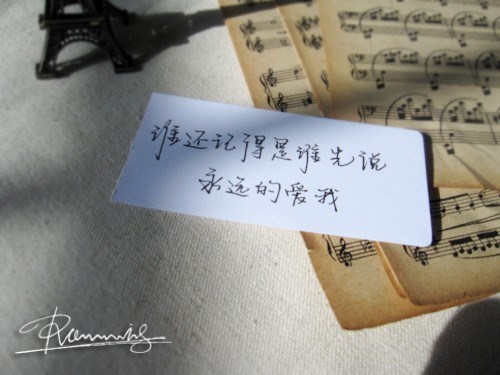 谁还记得是谁先说
永远的爱我